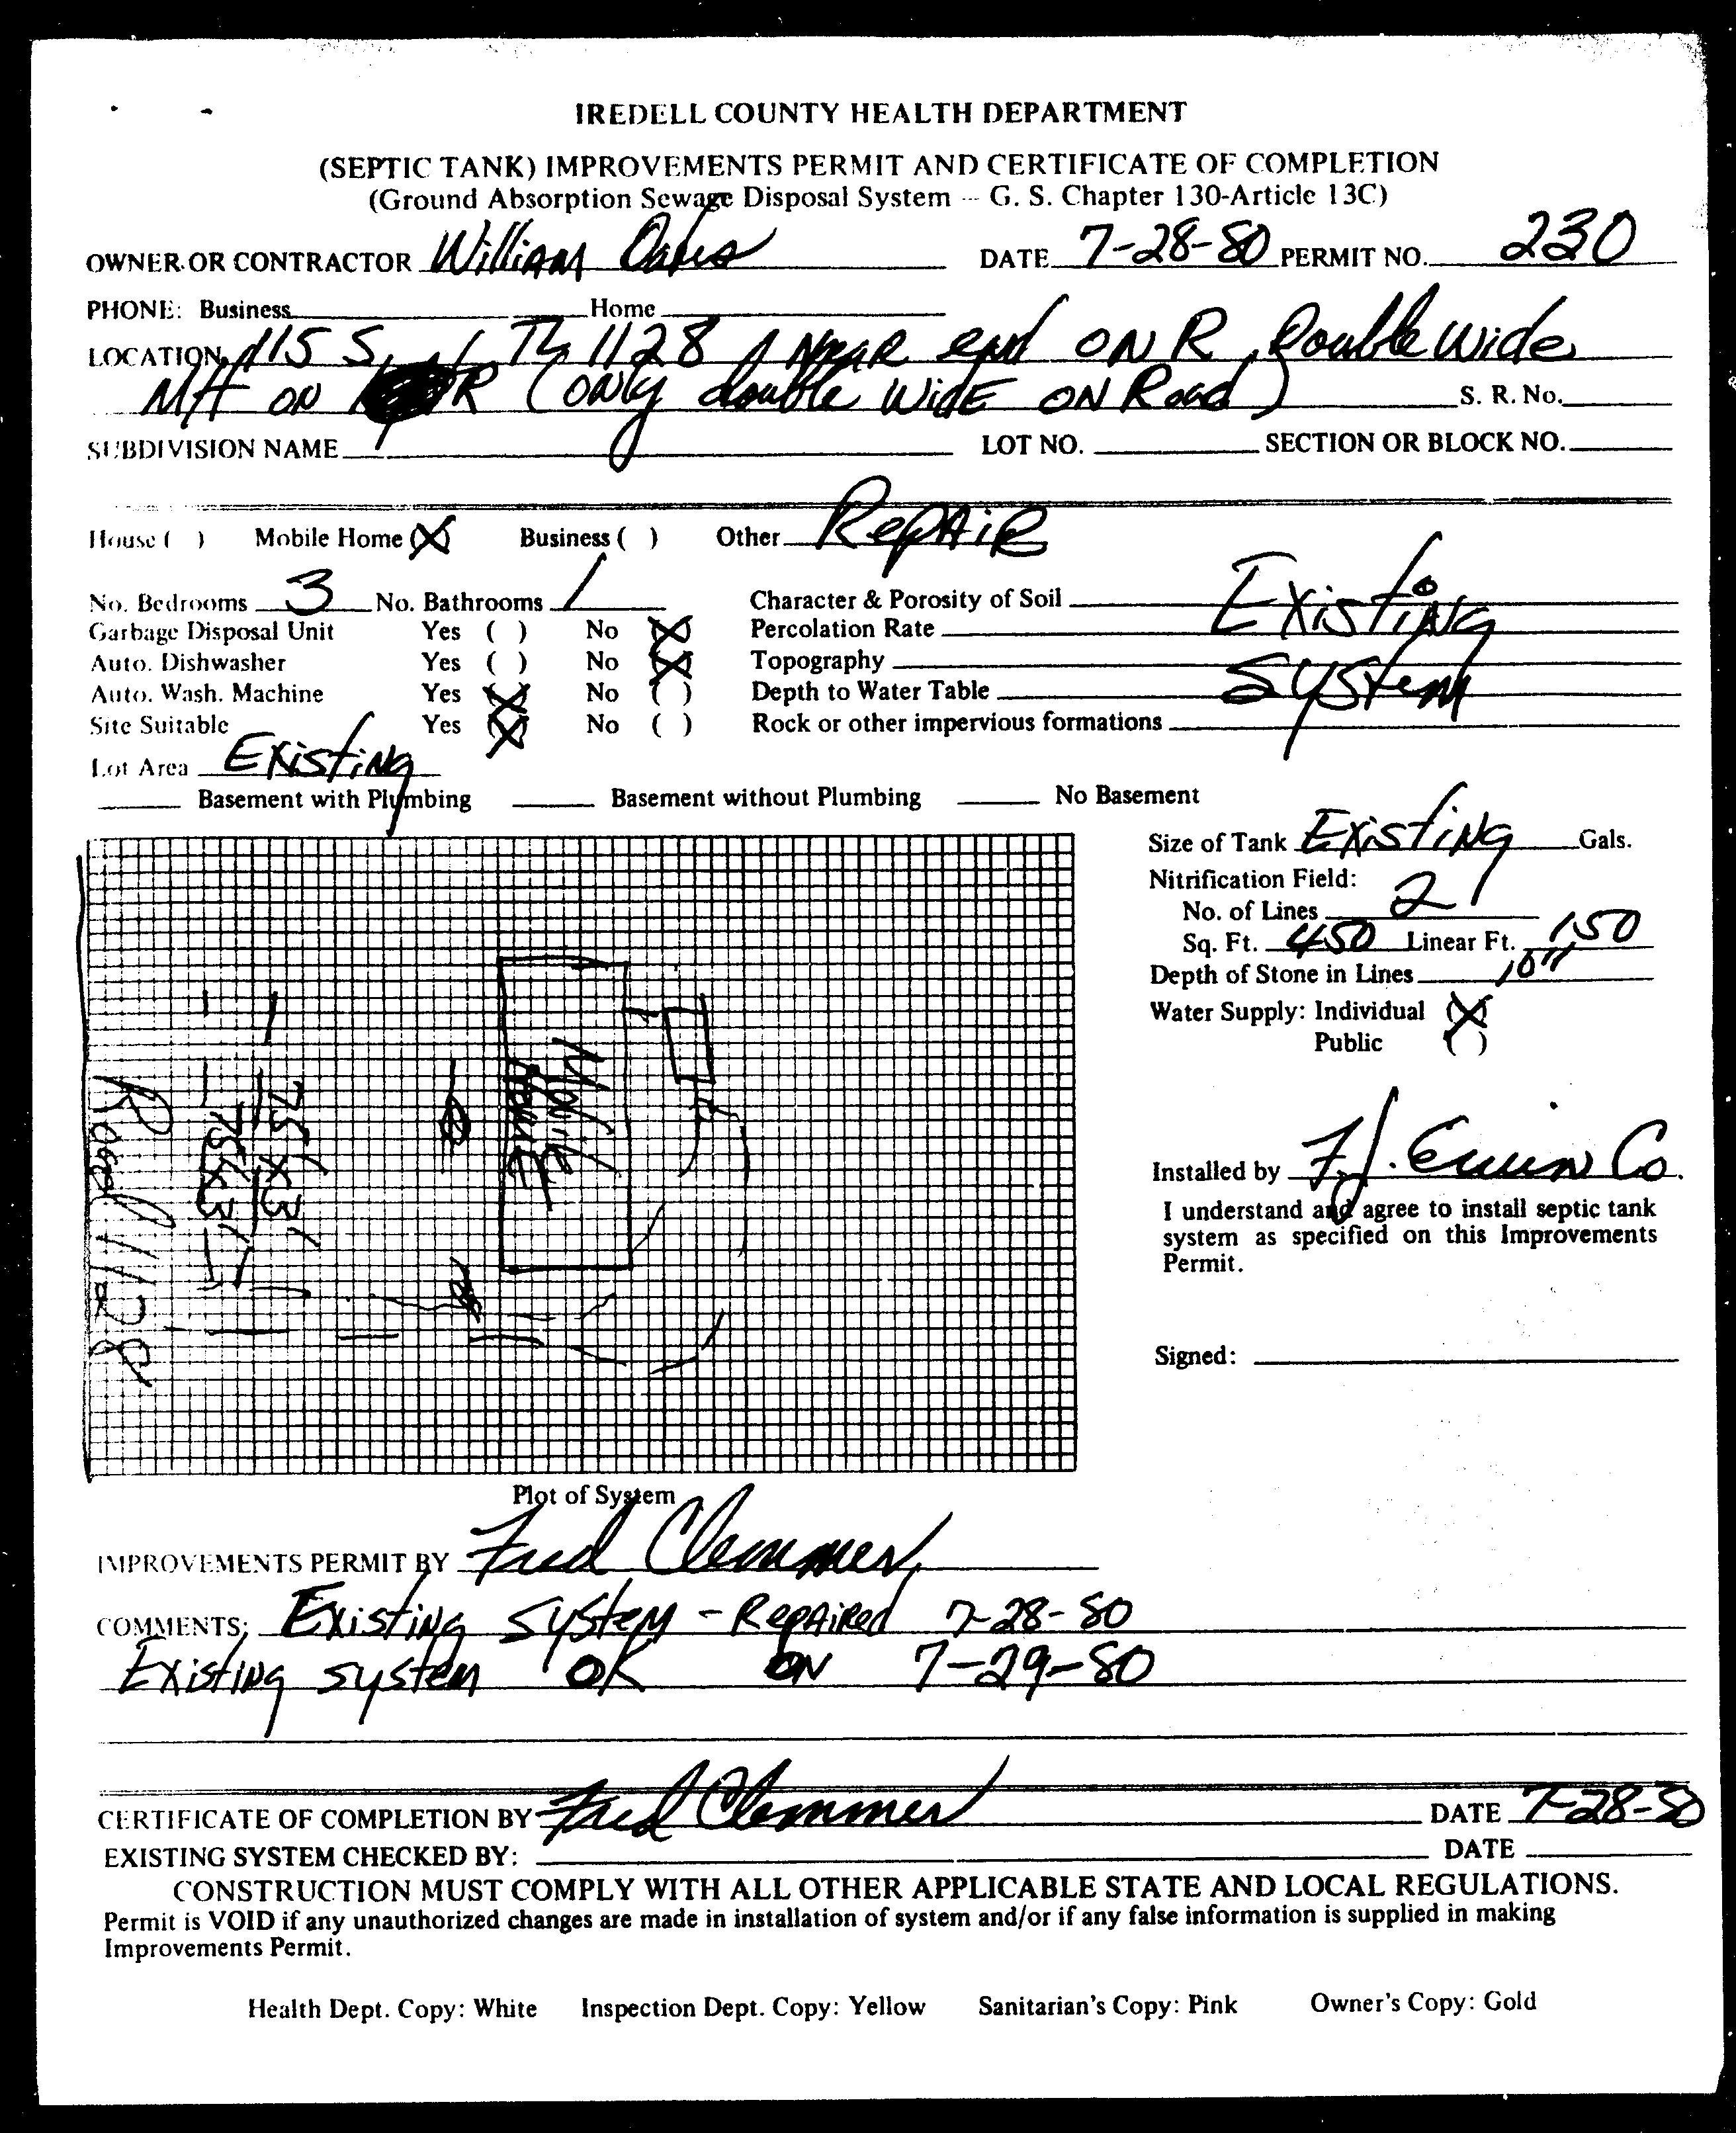 IREDELL COUNTY HEALTH DEPARTMENT
(SEPTIC TANK) IMPROVEMENTS PERMIT AND CERTIFICATE OF COMPLETION
(Ground Absorption Sewage Disposal System -- G. S. Chapter 130-Article 13C)
OWNER OR CONTRACTOR William DATE 7-28-80 PERMIT NO. 230
PHONE: Business Home
LOCATION 115 S, TL 1128 near end ON R Double Wide
MH ON R (ONly double WidE ON Road) S. R. No.
SUBDIVISION NAME LOT NO. SECTION OR BLOCK NO.
House ( ) Mobile Home (X) Business ( ) Other RepAiR
No. Bedrooms 3 No. Bathrooms 1 Character & Porosity of Soil Existing
Garbage Disposal Unit Yes ( ) No (X) Percolation Rate
Auto. Dishwasher Yes ( ) No (X) Topography System
Auto. Wash. Machine Yes (X) No ( ) Depth to Water Table
Site Suitable Yes (X) No ( ) Rock or other impervious formations
Lot Area Existing
Basement with Plumbing Basement without Plumbing No Basement
Size of Tank Existing Gals.
Nitrification Field:
No. of Lines 2
Sq. Ft. 450 Linear Ft. 150
Depth of Stone in Lines 10"
Water Supply: Individual (X)
Public ( )
Road 1128
75' X 3'
75' X 3'
Mobile
Home
Installed by F.J. Co.
I understand and agree to install septic tank
system as specified on this Improvements
Permit.
Signed:
Plot of System
IMPROVEMENTS PERMIT BY Fred Clemmer
COMMENTS: Existing System - RepAiRed 7-28-80
Existing system OK ON 7-29-80
CERTIFICATE OF COMPLETION BY Fred Clemmer DATE 7-28-80
EXISTING SYSTEM CHECKED BY: DATE
CONSTRUCTION MUST COMPLY WITH ALL OTHER APPLICABLE STATE AND LOCAL REGULATIONS.
Permit is VOID if any unauthorized changes are made in installation of system and/or if any false information is supplied in making
Improvements Permit.
Health Dept. Copy: White Inspection Dept. Copy: Yellow Sanitarian's Copy: Pink Owner's Copy: Gold